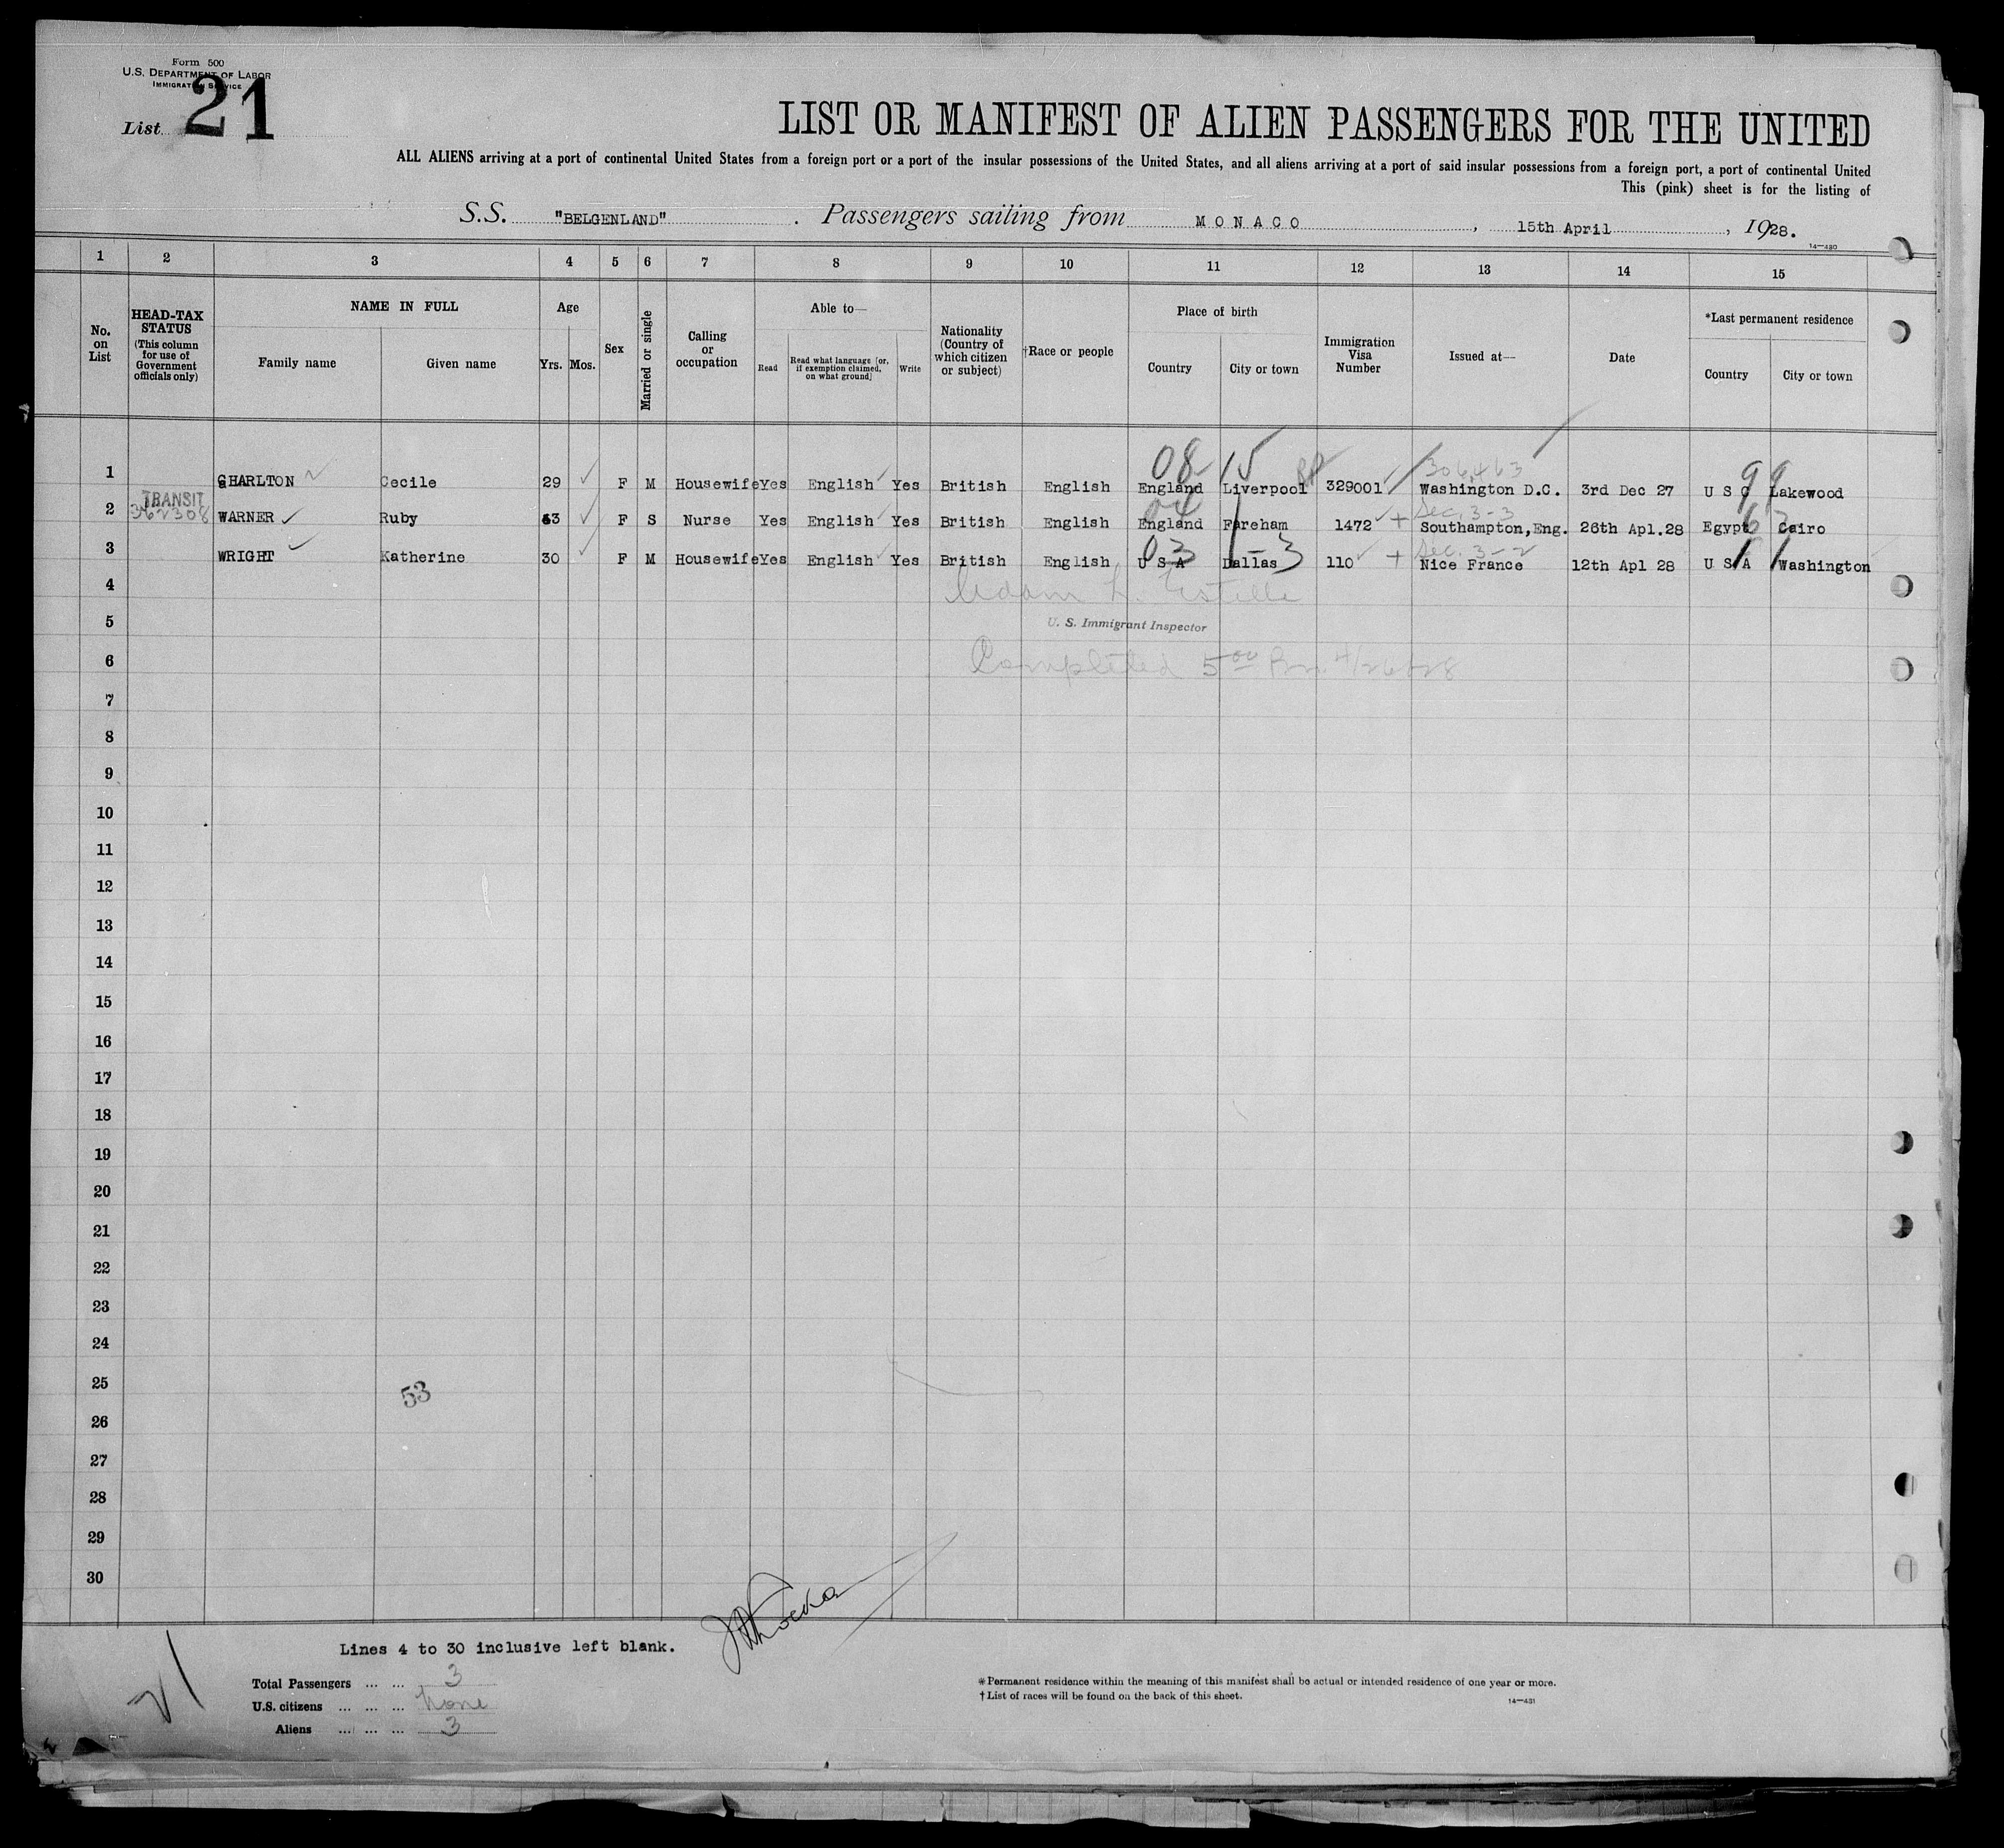 Form 500
U.S. DEPARTMENT OF LABOR
IMMIGRATION SERVICE
List 21
LIST OR MANIFEST OF ALIEN PASSENGERS FOR THE UNITED
ALL ALIENS arriving at a port of continental United States from a foreign port or a port of the insular possessions of the United States, and all aliens arriving at a port of said insular possessions from a foreign port, a port of continental United
This (pink) sheet is for the listing of
S.S. "BELGENLAND" . Passengers sailing from MONACO , 15th April , 1928.
14—480
1 2 3 4 5 6 7 8 9 10 11 12 13 14 15
No. on List
HEAD-TAX STATUS (This column for use of Government officials only)
NAME IN FULL
Family name Given name
Age
Yrs. Mos.
Sex
Married or single
Calling or occupation
Able to—
Read Read what language [or, if exemption claimed, on what ground] Write
Nationality (Country of which citizen or subject)
†Race or people
Place of birth
Country City or town
Immigration Visa Number
Issued at—
Date
*Last permanent residence
Country City or town
08 15 306463 99
1 GHARLTON Cecile 29 F M Housewife Yes English Yes British English England Liverpool 329001 Washington D.C. 3rd Dec 27 U S Lakewood
TRANSIT
362308
04 Sec. 3-3
2 WARNER Ruby 53 F S Nurse Yes English Yes British English England Fareham 1472 Southampton,Eng. 26th Apl.28 Egypt Cairo
03 1-3 Sec. 3-2
3 WRIGHT Katherine 30 F M Housewife Yes English Yes British English U S A Dallas 110 Nice France 12th Apl 28 U S A Washington
4
Adam L. Estelle
5
U. S. Immigrant Inspector
6
Completed 5 00 Pm 4/26/28
7
8
9
10
11
12
13
14
15
16
17
18
19
20
21
22
23
24
25
53
26
27
28
29
30
Lines 4 to 30 inclusive left blank.
21
Total Passengers ... ... 3
U.S. citizens ... ... ... None
Aliens ... ... ... 3
*Permanent residence within the meaning of this manifest shall be actual or intended residence of one year or more.
†List of races will be found on the back of this sheet.
14—481